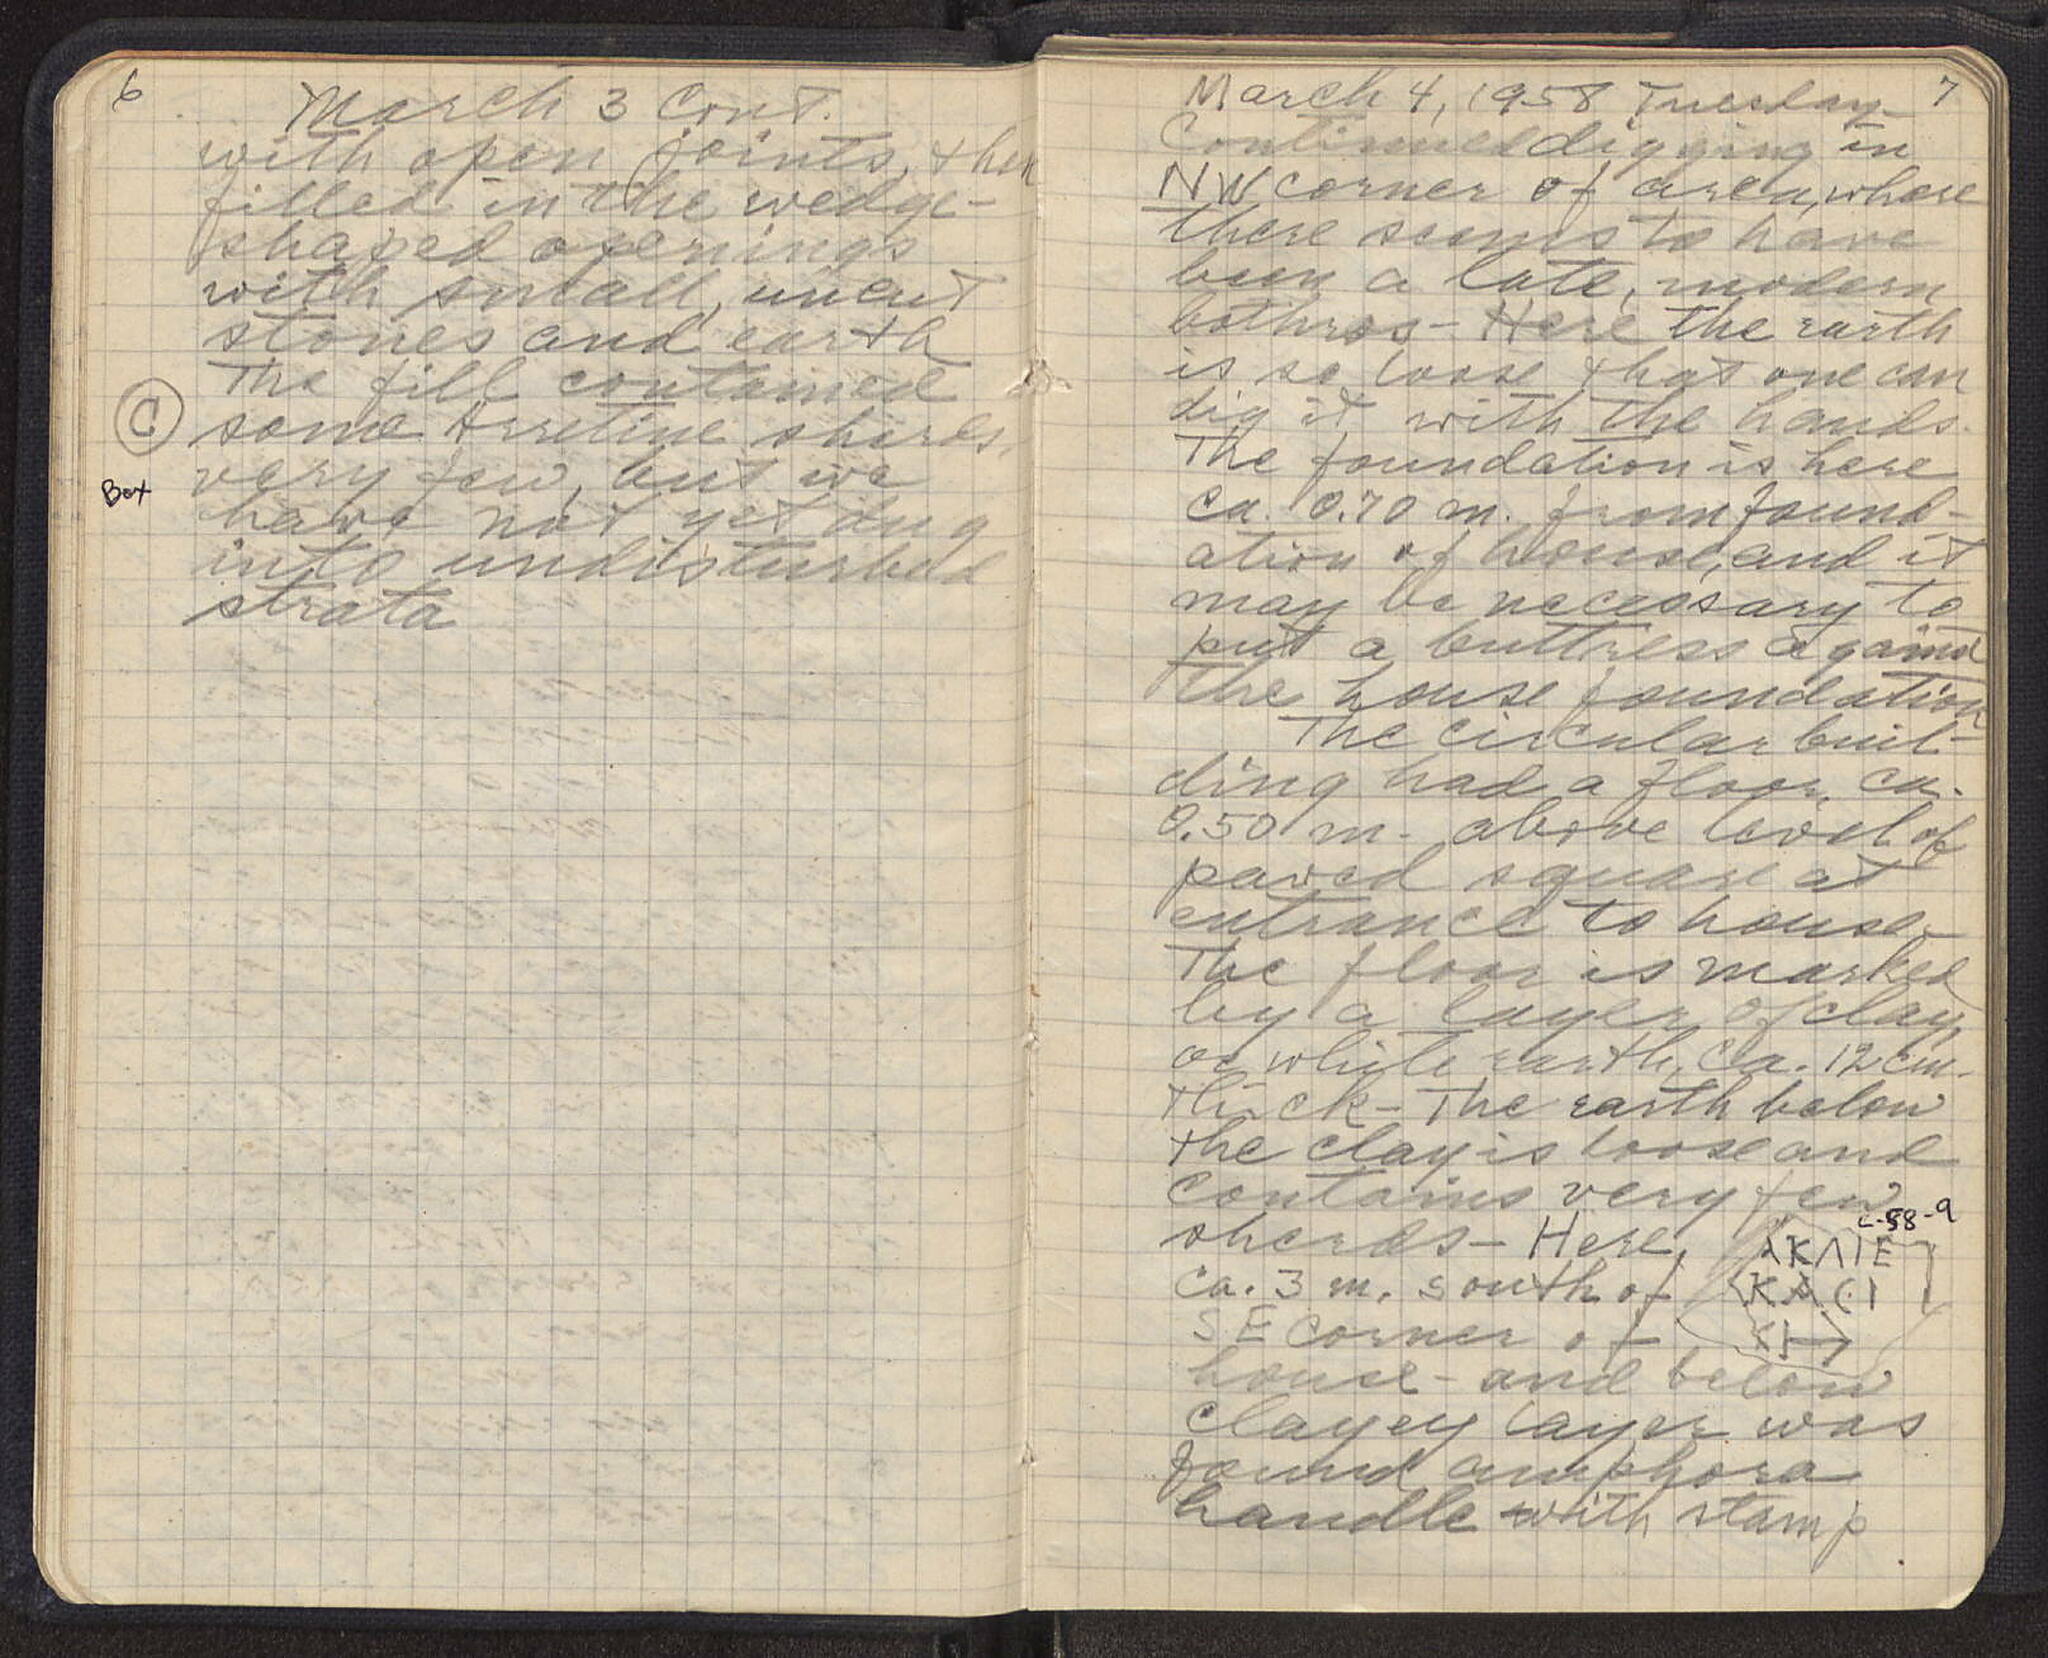 6
March 3 Cont.
with open joints, then
filled in the wedge-
shaped openings
with small, uncut
stones and earth
The fill contained
C some Arretine sherds,
very few, but we
Box
have not yet dug
into undisturbed
strata
7
March 4, 1958 Tuesday
Continued digging in
NW corner of area, where
there seems to have
been a late, modern
bothros - Here the earth
is so loose that one can
dig it with the hands.
The foundation is here
ca. 0.70 m. from found-
ation of house, and it
may be necessary to
put a buttress against
the house foundation
The circular buil-
ding had a floor, ca.
0.50 m. above level of
paved square at
entrance to house.
The floor is marked
by a layer of clay
or white earth, ca. 12 cm.
thick - The earth below
the clay is loose and
contains very few
sherds - Here,
ca. 3 m. south of
SE corner of
house - and below
clayey layer was
found amphora
handle with stamp
C-58-9
ΑΚΛΙΕ
ΚΛ(Ι